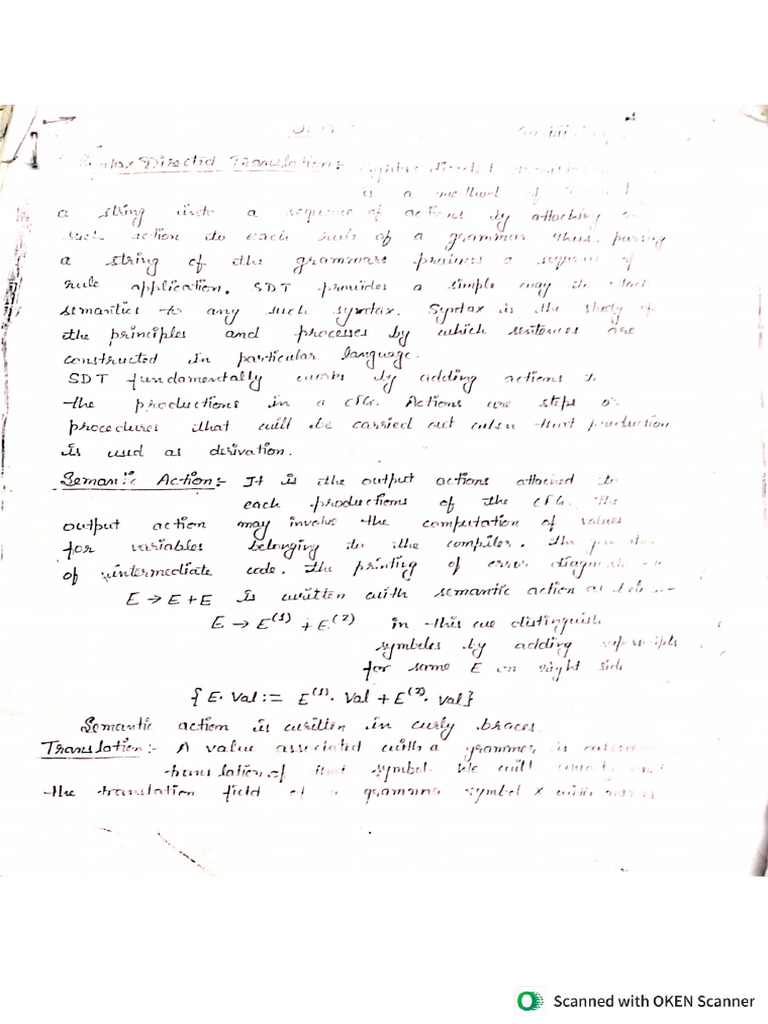 Syntax Directed Translation:- Syntax directed
is a method of
a string into a sequence of actions by attaching
such action to each rule of a grammar thus. parsing
a string of the grammars produces a sequence of
rule application. SDT provides a simple way to
semantics to any such syntax. Syntax is the study of
the principles and processes by which sentences are
constructed in particular language.
SDT fundamentally works by adding actions to
the productions in a CFG. Actions are steps or
procedures that will be carried out when that production
is used as derivation.
Semantic Action:- It is the output actions attached to
each productions of the CFG. The
output action may involve the computation of values
for variables belonging to the compiler. the
of intermediate code. the printing of error
E → E + E is written with semantic action as
E → E(1) + E(2) in this we distinguish
symbols by adding
for same E on right side
{ E. Val := E(1). Val + E(2). Val}
Semantic action is written in curly braces.
Translation:- A value associated with a grammer is
translation of that symbol. We will
the translation field of a grammar symbol x with
Scanned with OKEN Scanner